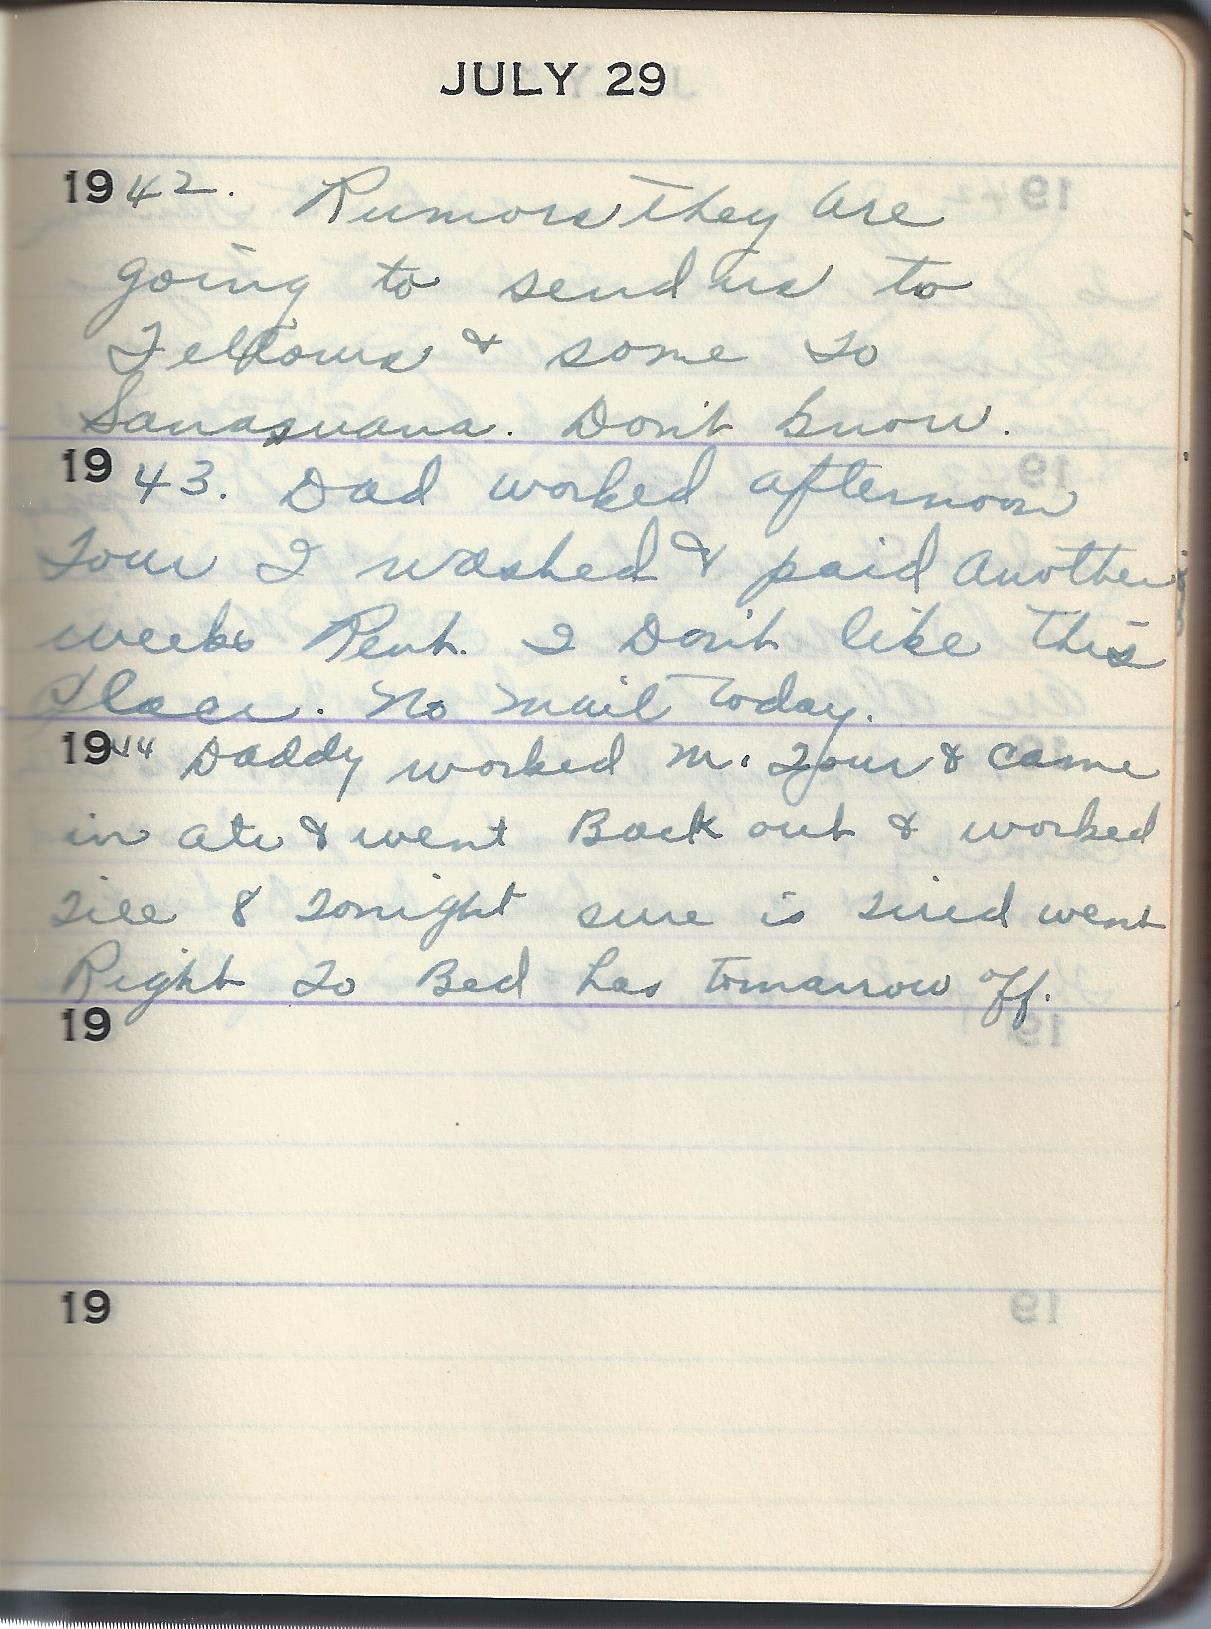 JULY 29
1942. Rumors they are
going to send us to
Fellows & some to
Don't know.
1943. Dad worked afternoon
Tour I washed & paid another
weeks Rent. I Don't like this
place. No mail today.
1944 Daddy worked m. Tour & came
in ate & went Back out & worked
till 8 tonight sure is tired went
Right to Bed has tomarrow off.
19
19